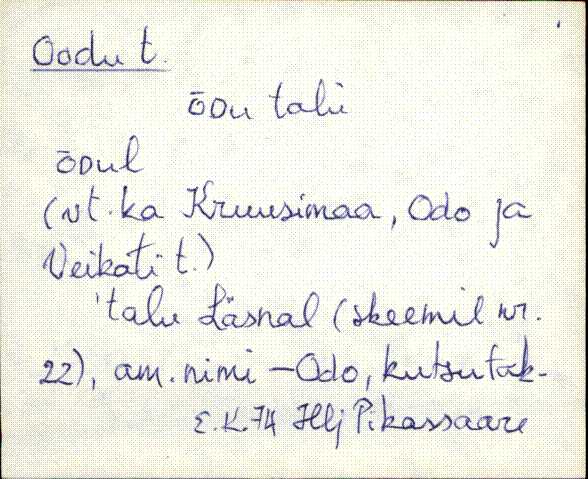 Oodu t.
ōDu talu
ōDul
(vt. ka Kruusimaa, Odo ja
Veikati t.)
'talu Läsnal (skeemil nr.
22), am. nimi – Odo, kutsutak-
E.K. 74 Hlj Pikassaare